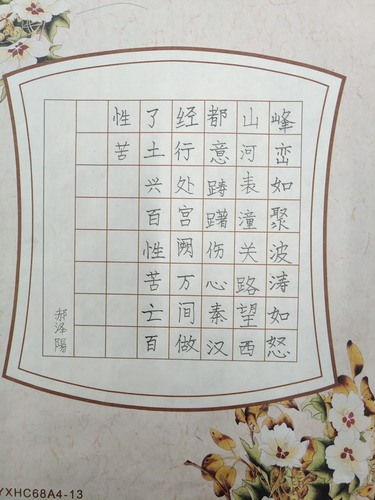 峰峦如聚波涛如怒
山河表潼关路望西
都意踌躇伤心秦汉
经行处宫阙万间做
了土兴百性苦亡百
性苦
郝泽陽
YXHC68A4-13